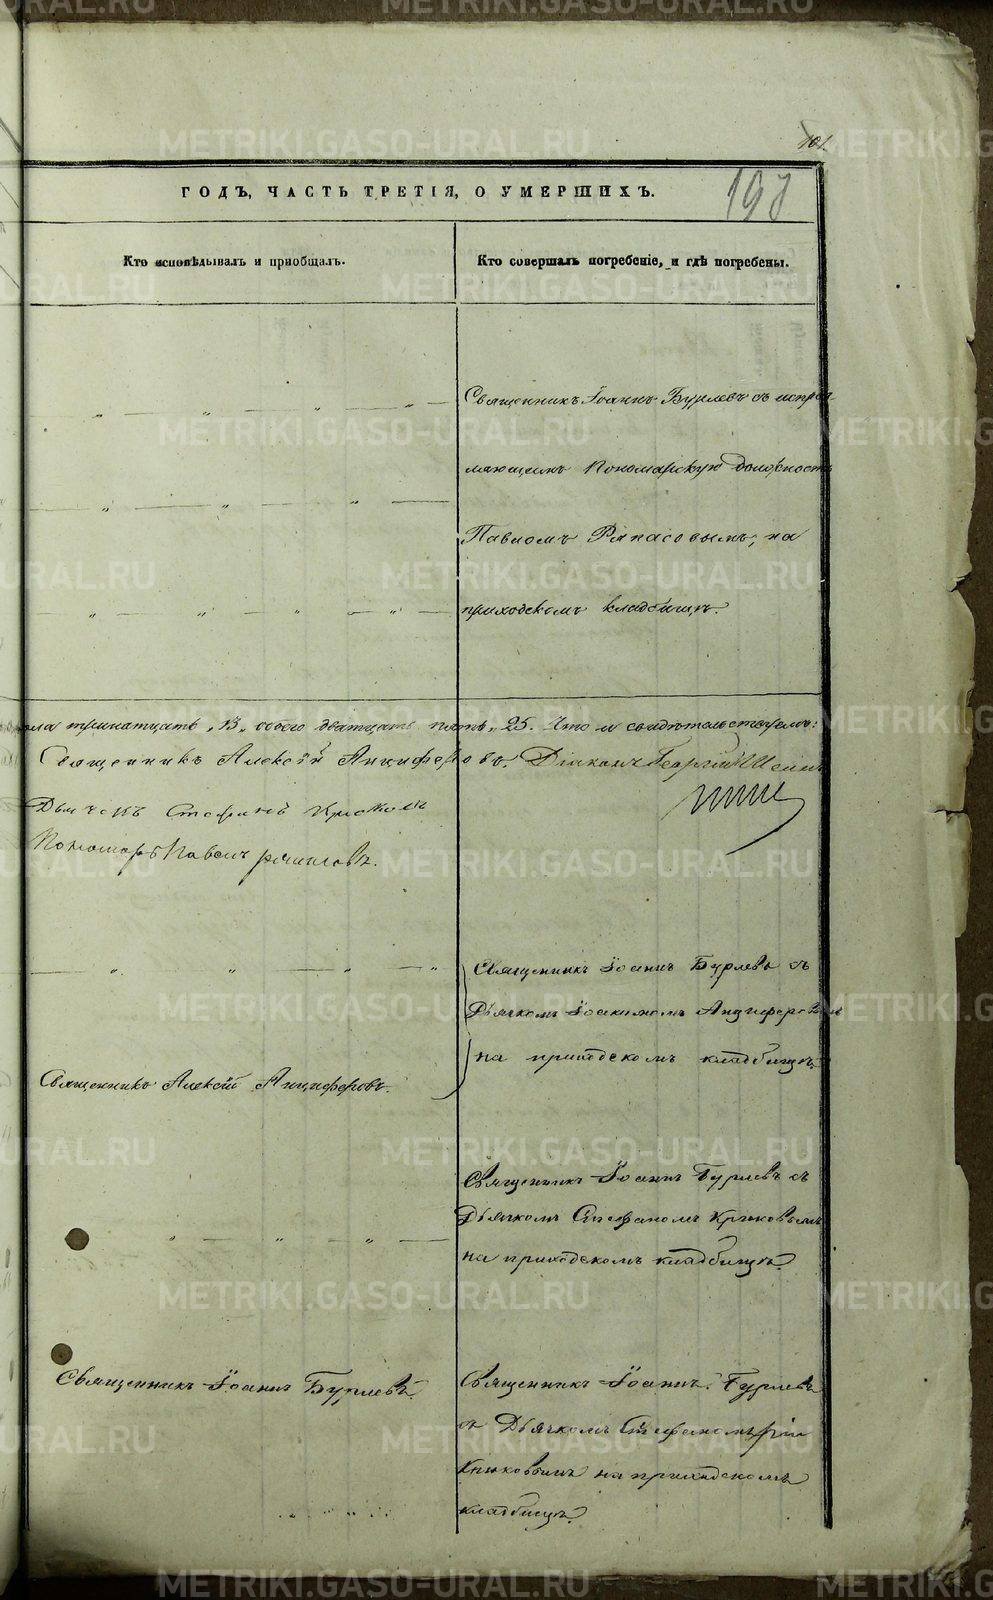 101.
198
ГОДЪ, ЧАСТЬ ТРЕТІЯ, О УМЕРШИХЪ.
Кто исповѣдывалъ и пріобщалъ.
Кто совершалъ погребеніе, и гдѣ погребены.
Священникъ Іоаннъ Бурлевъ съ исправ
ляющимъ пономарскую должность
Павломъ на
приходскомъ кладбищѣ.
пола тринатцать, 13, обоего дватцать пять, 25. Что и свидѣтельствуемъ:
Священникъ Алексѣй Анциферовъ. Діаконъ Георгій
Дьячекъ Стефанъ
Пономарь Павелъ
Священникъ Іоаннъ Бурлевъ съ
Дьячкомъ Іоакимомъ Анциферовымъ
на приходскомъ кладбищѣ.
Священникъ Алексѣй Анциферовъ.
Священникъ Іоаннъ Бурлевъ съ
Дьячкомъ Стефаномъ Крюковымъ
на приходскомъ кладбищѣ.
Священникъ Іоаннъ Бурлевъ.
Священникъ Іоаннъ Бурлевъ
съ Дьячкомъ Стефаномъ
Крюковымъ на приходскомъ
кладбищѣ.
METRIKI.GASO-URAL.RU